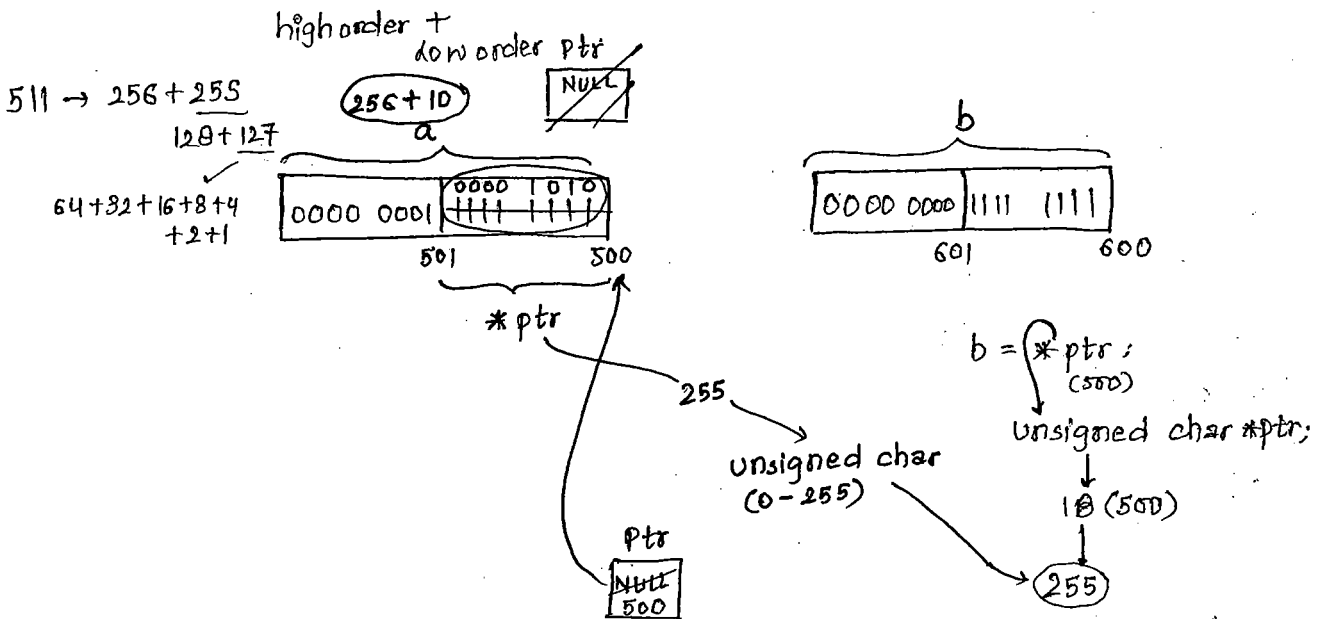 high order +
low order
ptr
NULL
511 → 256 + 255
128 + 127
64+32+16+8+4
+2+1
256+10
a
0000 0001
0000 1010
1111 1111
501
500
* ptr
b
0000 0000
1111 1111
601
600
b = * ptr ;
(500)
unsigned char *ptr;
1B (500)
255
255
unsigned char
(0 - 255)
ptr
NULL
500